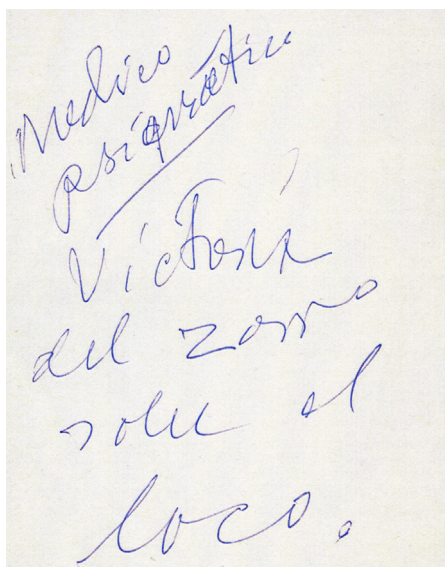 Medico
psiquiatrico
Victoria
del zorro
sobre el
loco.